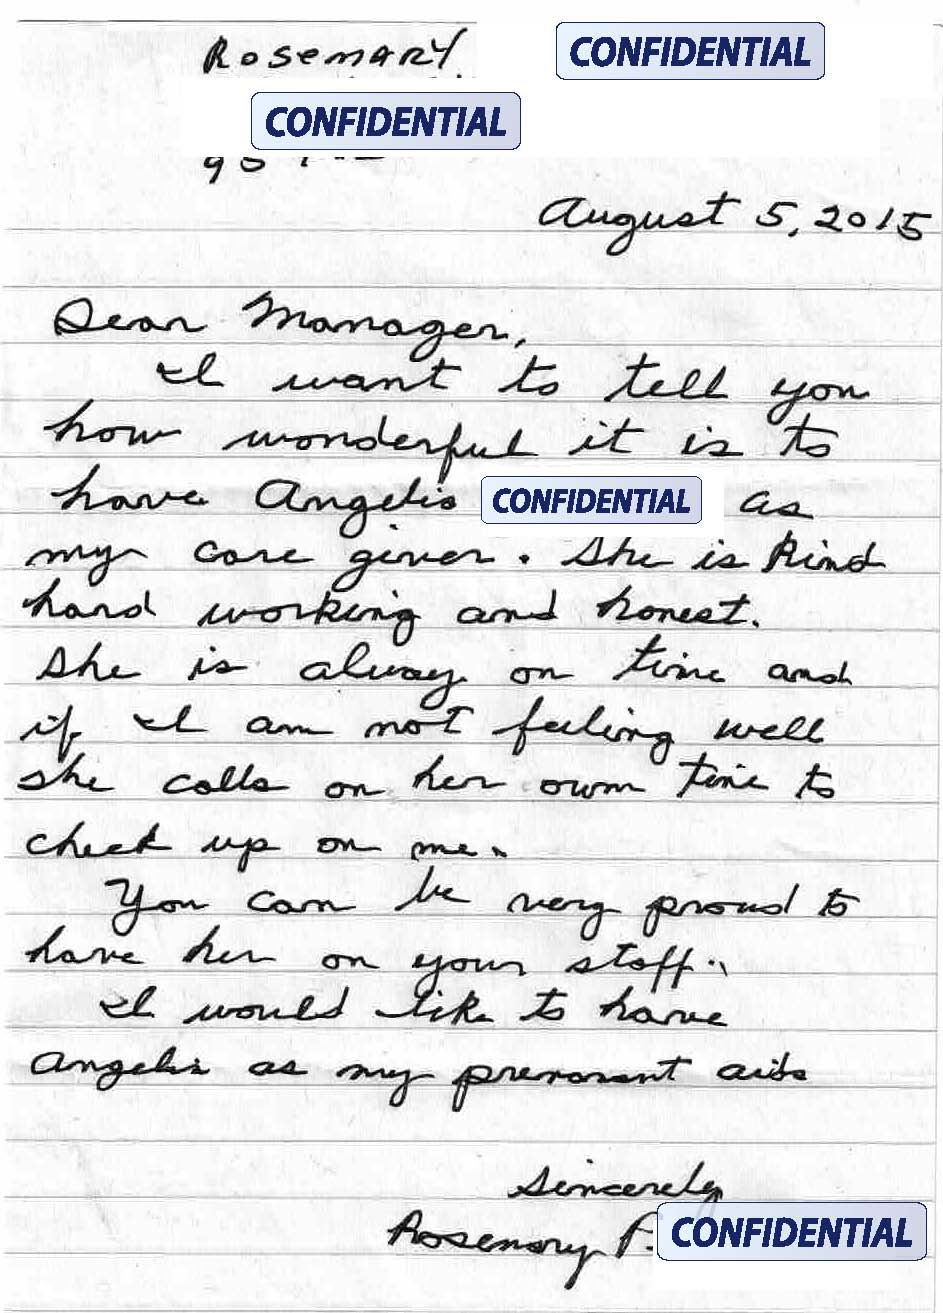 Rosemary
CONFIDENTIAL
CONFIDENTIAL
August 5, 2015
Dear Manager,
I want to tell you
how wonderful it is to
have Angelis CONFIDENTIAL as
my care giver. She is kind
hard working and honest.
She is alway on time and
if I am not feeling well
she calls on her own time to
check up on me.
You can be very proud to
have her on your staff.
I would like to have
Angelis as my aide
Sincerely
Rosemary P. CONFIDENTIAL